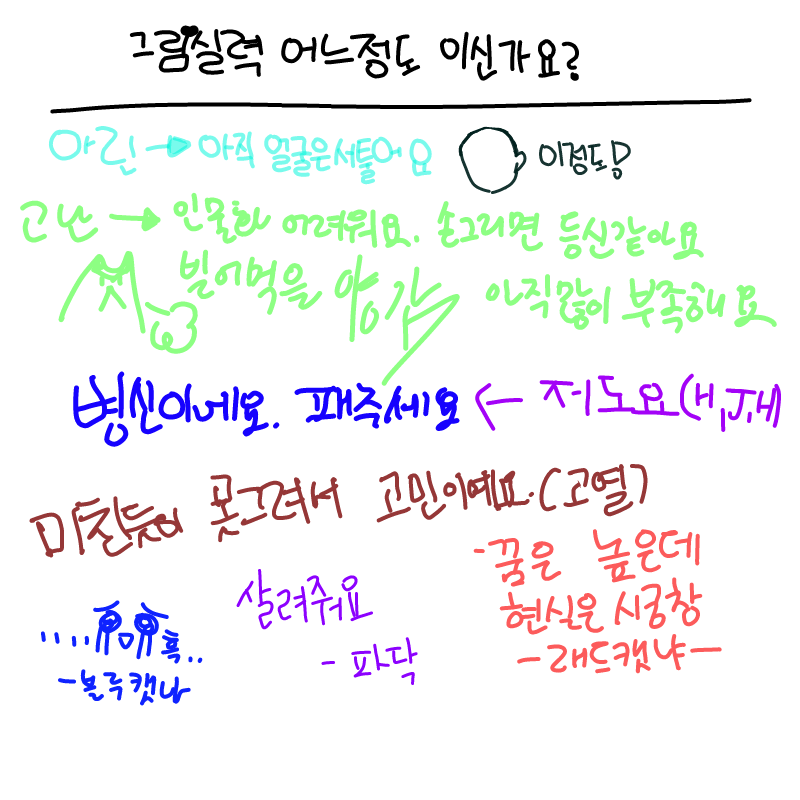 그림실력 어느정도 이신가요?
아린 → 아직 얼굴은서툴어요 이정도!
고난 → 인물화 어려워요. 손그리면 등신같아요
빌어먹을 양감 아직많이 부족해요
병신이네요. 패주세요 ← 저도요(H,J,H)
미친듯이 못그려서 고민이예요.(고열)
-꿈은 높은데
현식은 시궁창
-래드캣냐-
살려줘요
- 파닥
.....흑..
-블루캣냐